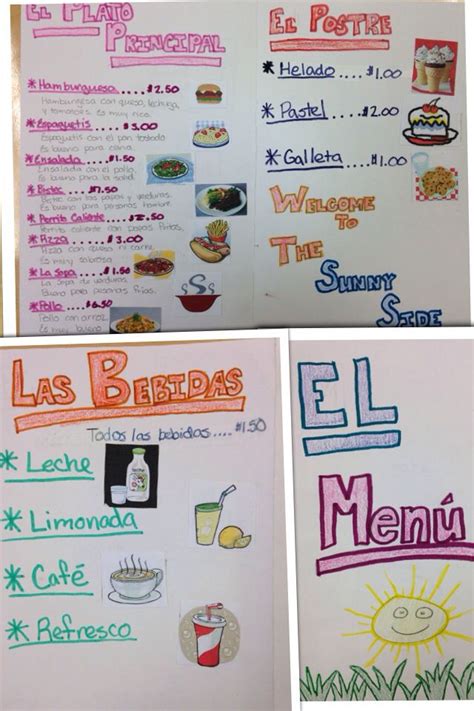 El Plato
Principal
* Hamburguesa ..... $2.50
Hamburguesa con queso, lechuga
y tomates. Es muy rico.
* Espaguetis ..... $3.00
Espaguetis con pan tostado
Es bueno para cena.
* Ensalada .....$1.50
Ensalada con pollo.
Es bueno para la salud.
* Bistec ....$17.50
Bistec con las papas y verduras.
Es bueno para personas hambre
* Perrito Caliente .... $2.50
Perrito caliente con papas fritas.
* Pizza ..... $3.00
Pizza con queso ni carne.
Es muy sabrosa
* La Sopa .... $1.50
La sopa de verduras
Bueno para personas frías.
* Pollo .... $6.50
Pollo con arroz.
Es muy bueno
El Postre
* Helado .... $1.00
* Pastel .... $2.00
* Galleta .... $1.00
Welcome
To
The
Sunny
Side
Las Bebidas
Todos las bebidas .... $1.50
* Leche
* Limonada
* Café
* Refresco
El
Menú